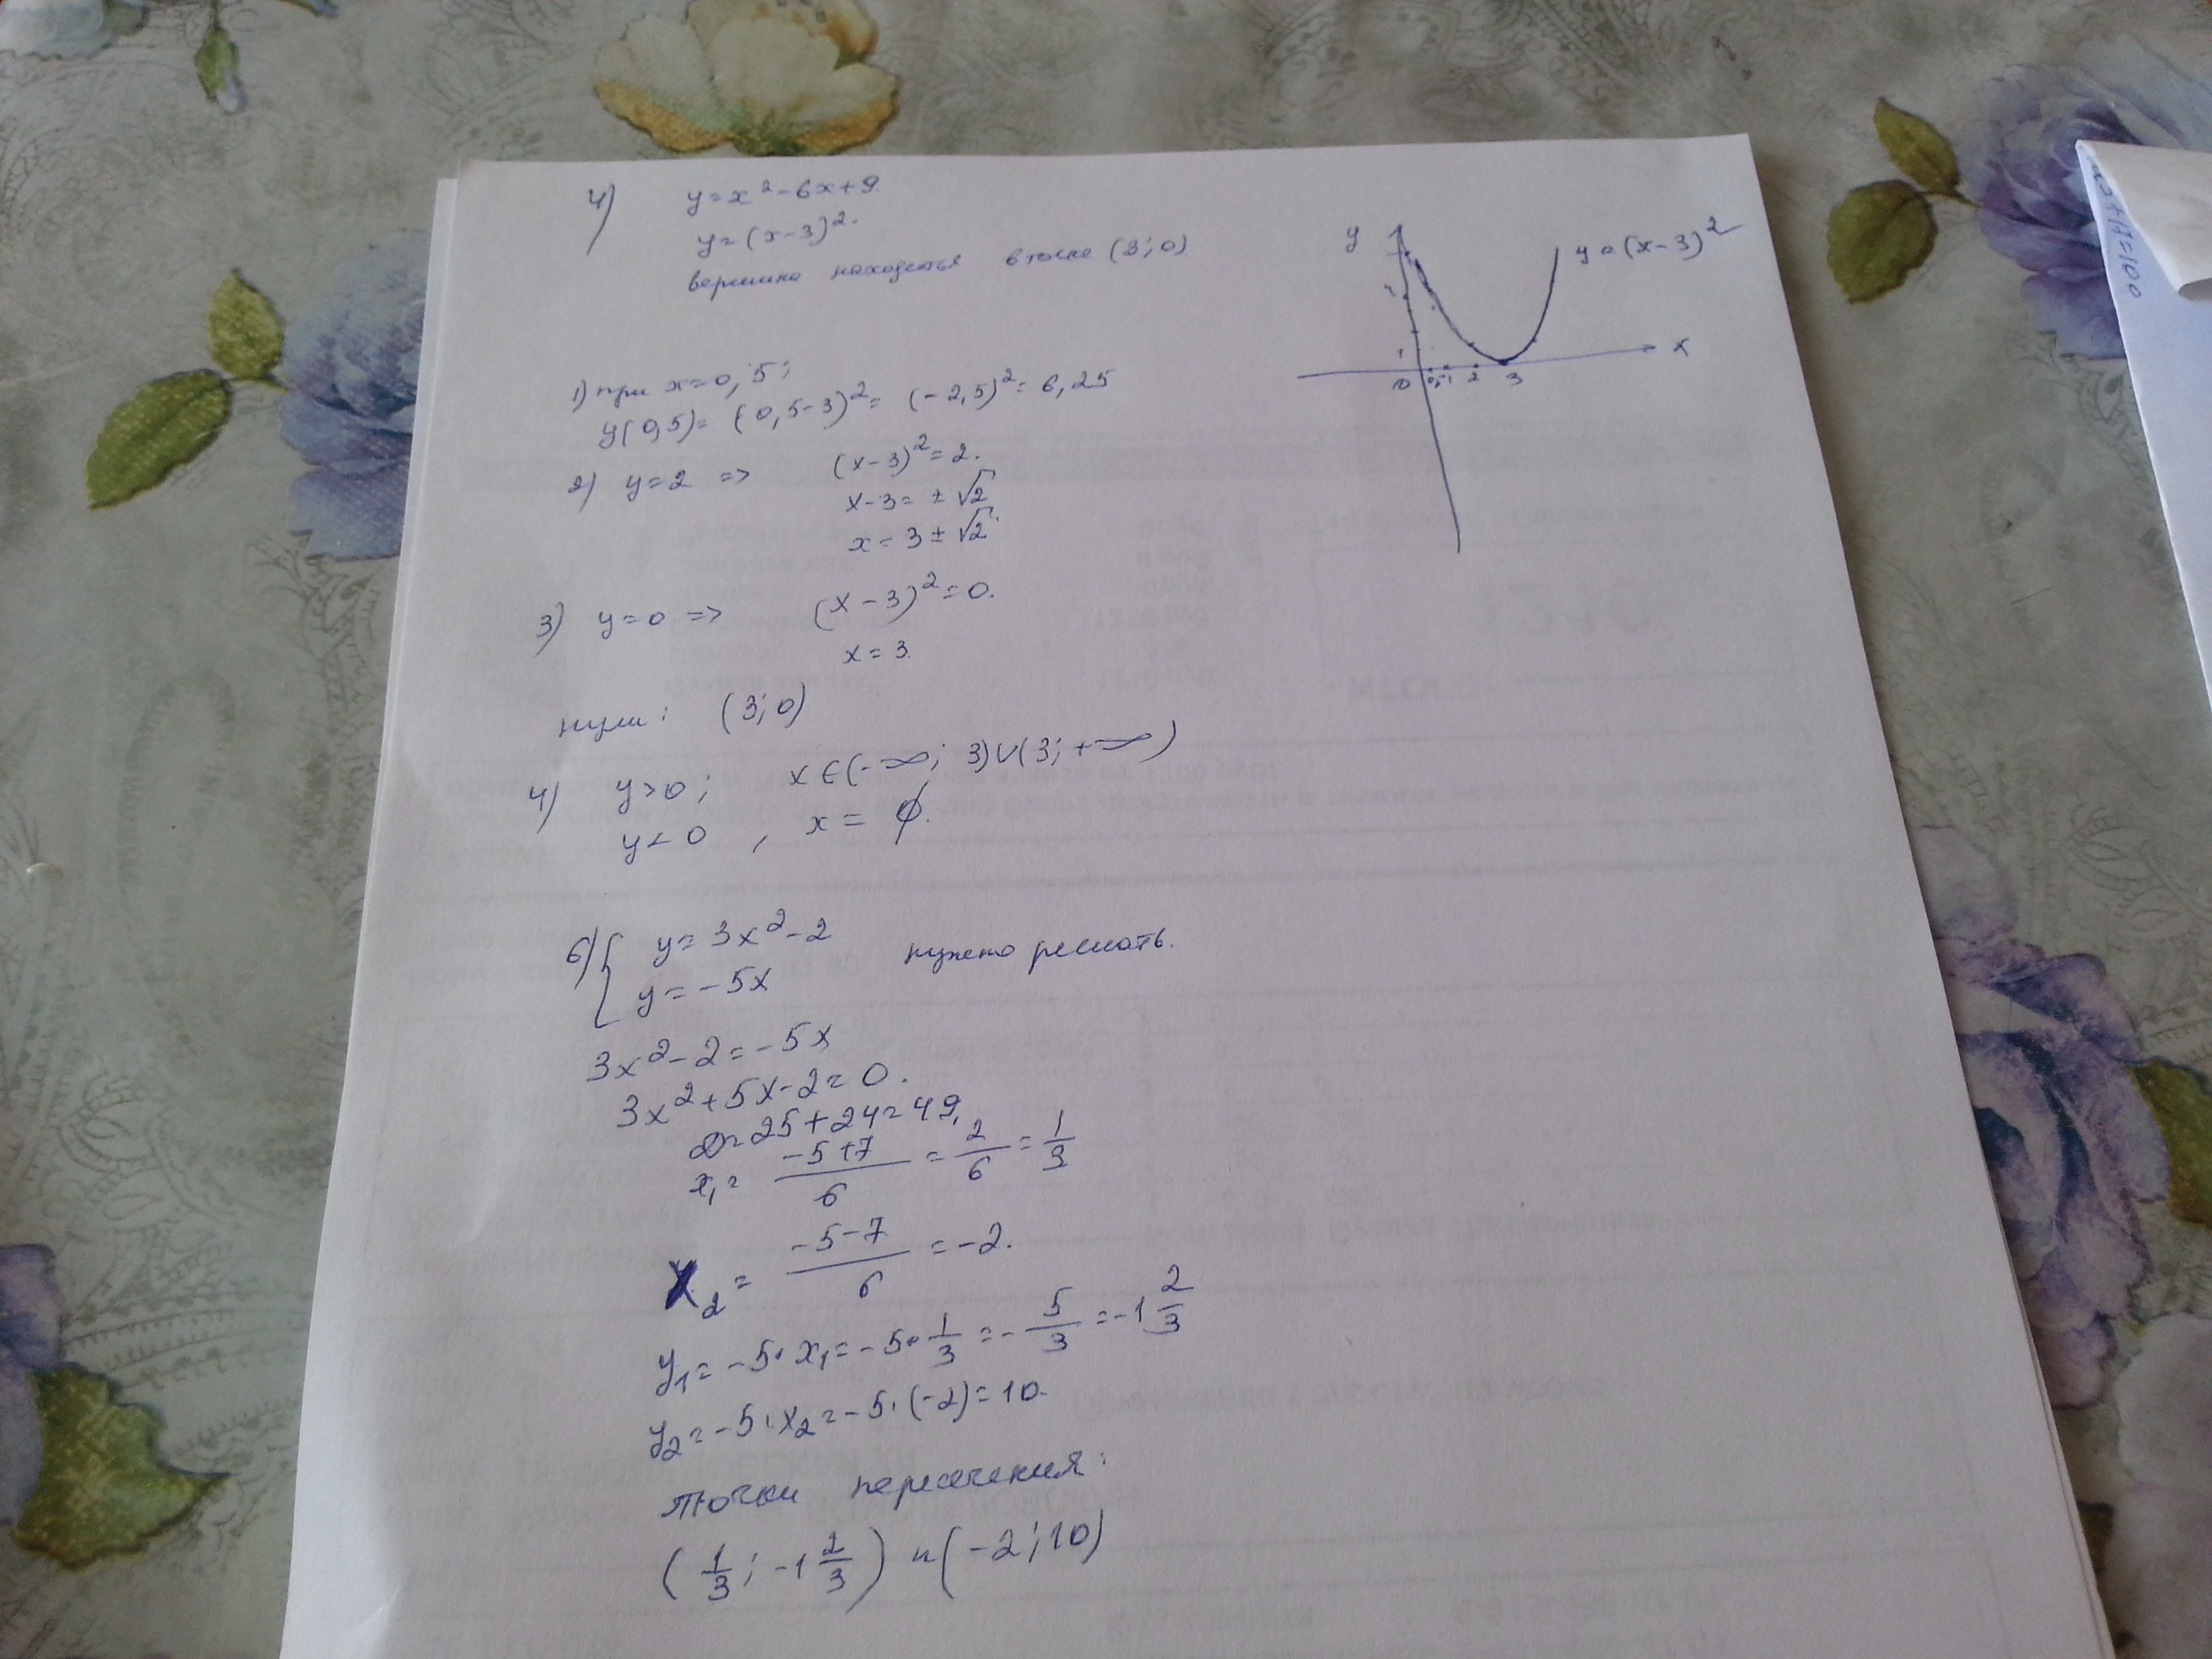 4) y=x²-6x+9.
y=(x-3)².
вершина находится в точке (3;0)
y
y=(x-3)²
4
1
x
0 0,5 1 2 3
1) при x=0,5;
y(0,5)= (0,5-3)²= (-2,5)²= 6,25
2) y=2 => (x-3)²=2.
x-3= ±√2
x= 3±√2
3) y=0 => (x-3)²=0.
x=3.
нули: (3;0)
4) y>0; x∈(-∞; 3)∪(3;+∞)
y<0 , x= ∅.
6) { y= 3x²-2 нужно решать.
y= -5x
3x²-2=-5x
3x²+5x-2=0.
D=25+24=49.
x₁= (-5+7)/6 = 2/6 = 1/3
x₂= (-5-7)/6 =-2.
y₁=-5·x₁=-5·1/3 =-5/3 =-1 2/3
y₂=-5·x₂=-5·(-2)=10.
точки пересечения:
(1/3; -1 2/3) и (-2;10)